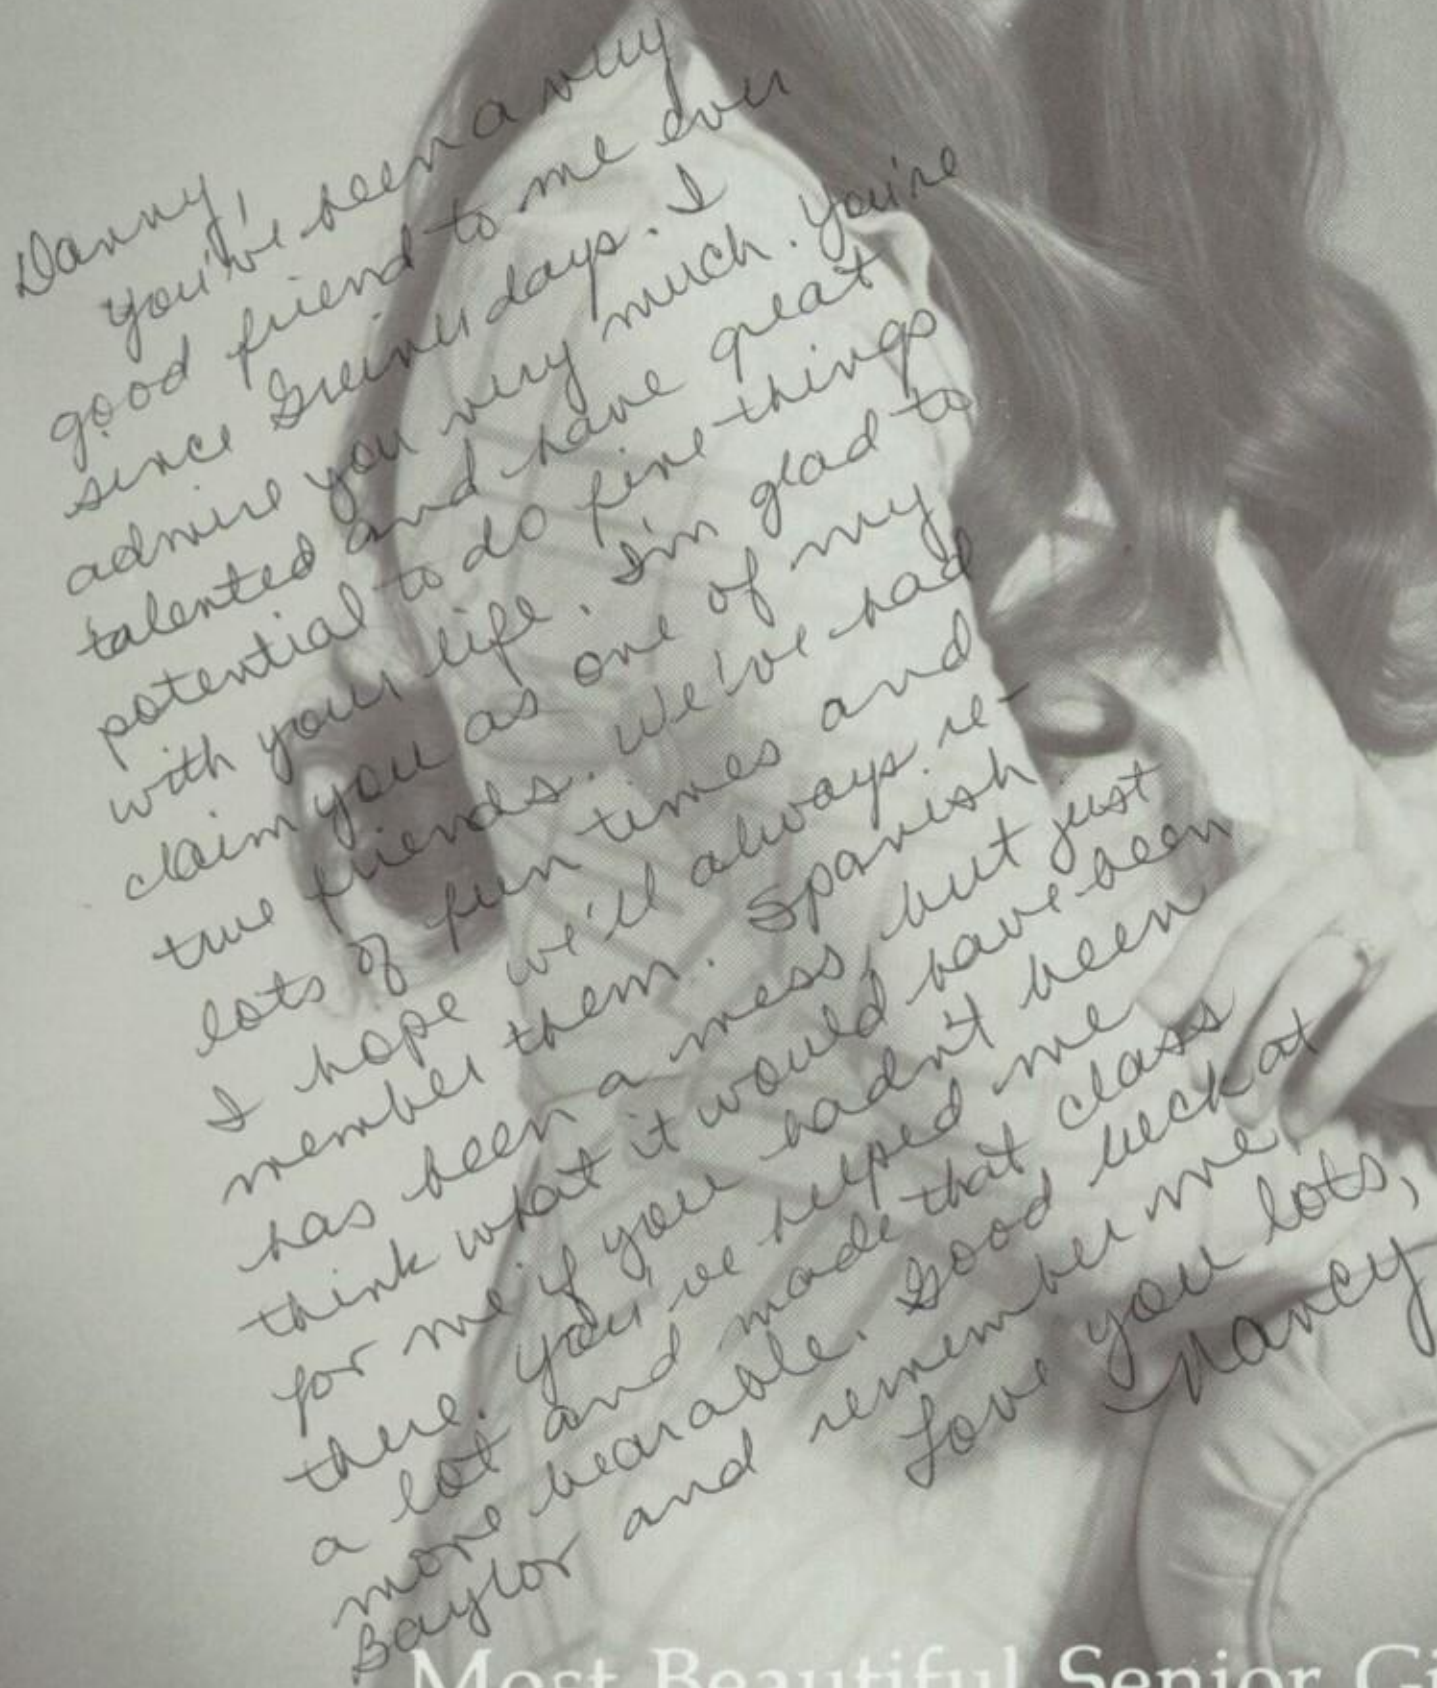 Danny,
you've been a very
good friend to me ever
since Greiner days. I
admire you very much. You're
talented and have great
potential to do fine things
with your life. I'm glad to
claim you as one of my
true friends. We've had
lots of fun times and
I hope we'll always re-
member them. Spanish
has been a mess, but just
think what it would have been
for me if you hadn't been
there. You've helped me
a lot and made that class
more bearable. Good luck at
Baylor and remember me.
Love you lots,
Nancy
Most Beautiful Senior Gi